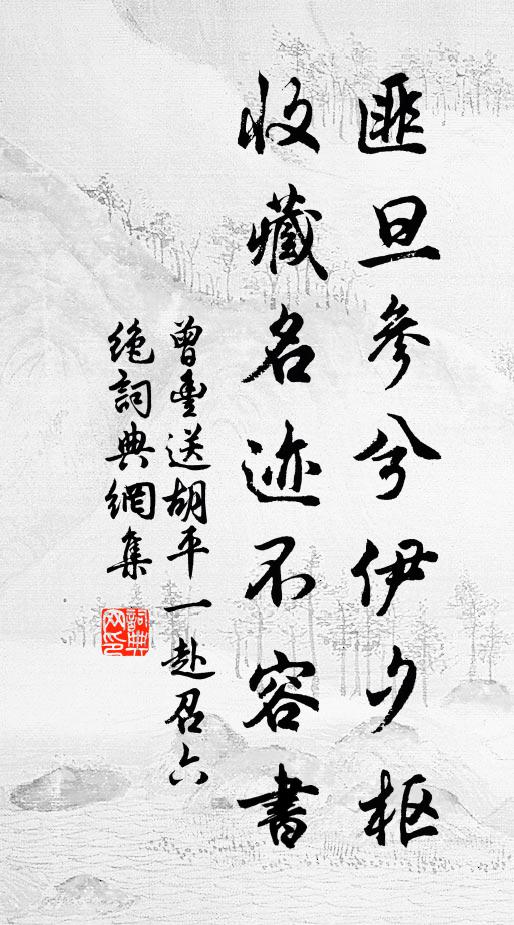 匪旦参兮伊夕枢
收藏名迹不容書
曾豐送胡平一赴召六
絶詞典網集
詞典网印